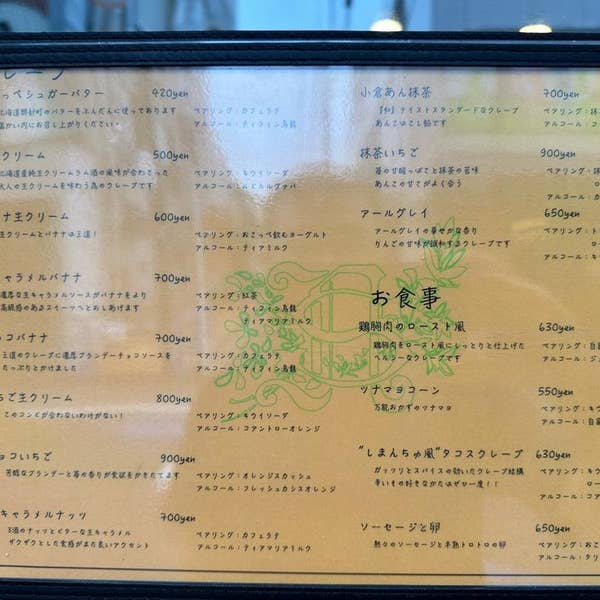 レープ
っぺシュガーバター 420yen
のバターをふんだんに使っております
温かい内にお召し上がりください・
ペアリング：カフェラテ
アルコール：ティフィン烏龍
クリーム 500yen
北海道産純生クリームラム酒の風味が合わさった
大人の生クリームを味わう為のクレープです
ペアリング：キウイソーダ
アルコール：
ナナ生クリーム 600yen
生クリームとバナナは王道！
ペアリング：おこっぺ飲むヨーグルト
アルコール：ティアミルク
キャラメルバナナ 700yen
濃厚な生キャラメルソースがバナナをより
高級感のあるスイーツへとおしあげます
ペアリング：紅茶
アルコール：ティフィン烏龍
ティアマリアミルク
ョコバナナ 700yen
王道のクレープに濃厚ブランデーチョコソースを
たっぷりとかけました
ペアリング：カフェラテ
アルコール：ティフィン烏龍
ちご生クリーム 800yen
このコンビが合わないわけがない！
ペアリング：キウイソーダ
アルコール：コアントローオレンジ
ョコいちご 900yen
芳醇なブランデーと苺の香りが食欲をかきたてます
ペアリング：オレンジスカッシュ
アルコール：フレッシュカシスオレンジ
キャラメルナッツ 700yen
3種のナッツとビターな生キャラメル
ザクザクとした食感がまた良いアクセント
ペアリング：カフェラテ
アルコール：ティアマリアミルク
小倉あん抹茶 700yen
【和】テイストスタンダードなクレープ
あんこはこし餡です
ペアリング：抹
アルコール：コ
抹茶いちご 900yen
苺の甘酸っぱさと抹茶の苦味
あんこの甘さがよく合う
ペアリング：抹
ロ
アルコール：カ
アールグレイ 650yen
アールグレイの華やかな香り
りんごの甘味が調和するクレープです
ペアリング：ト
ロー
アルコール：キ
お食事
鶏胸肉のロースト風 630yen
鶏胸肉をロースト風にしっとりと仕上げた
ヘルシーなクレープです
ペアリング：
アルコール：ジ
ツナマヨコーン 550yen
万能おかずのツナマヨ
ペアリング：キウ
アルコール：自家
“しまんちゅ風”タコスクレープ 630yen
ガッツリとスパイスの効いたクレープ
辛いもの好きなかたはぜひ一度！！
ペアリング：キウ
ロー
アルコール：コア
ソーセージと卵 650yen
熱々のソーセージと半熟トロトロの卵
ペアリング：おこ
アルコール：クリ